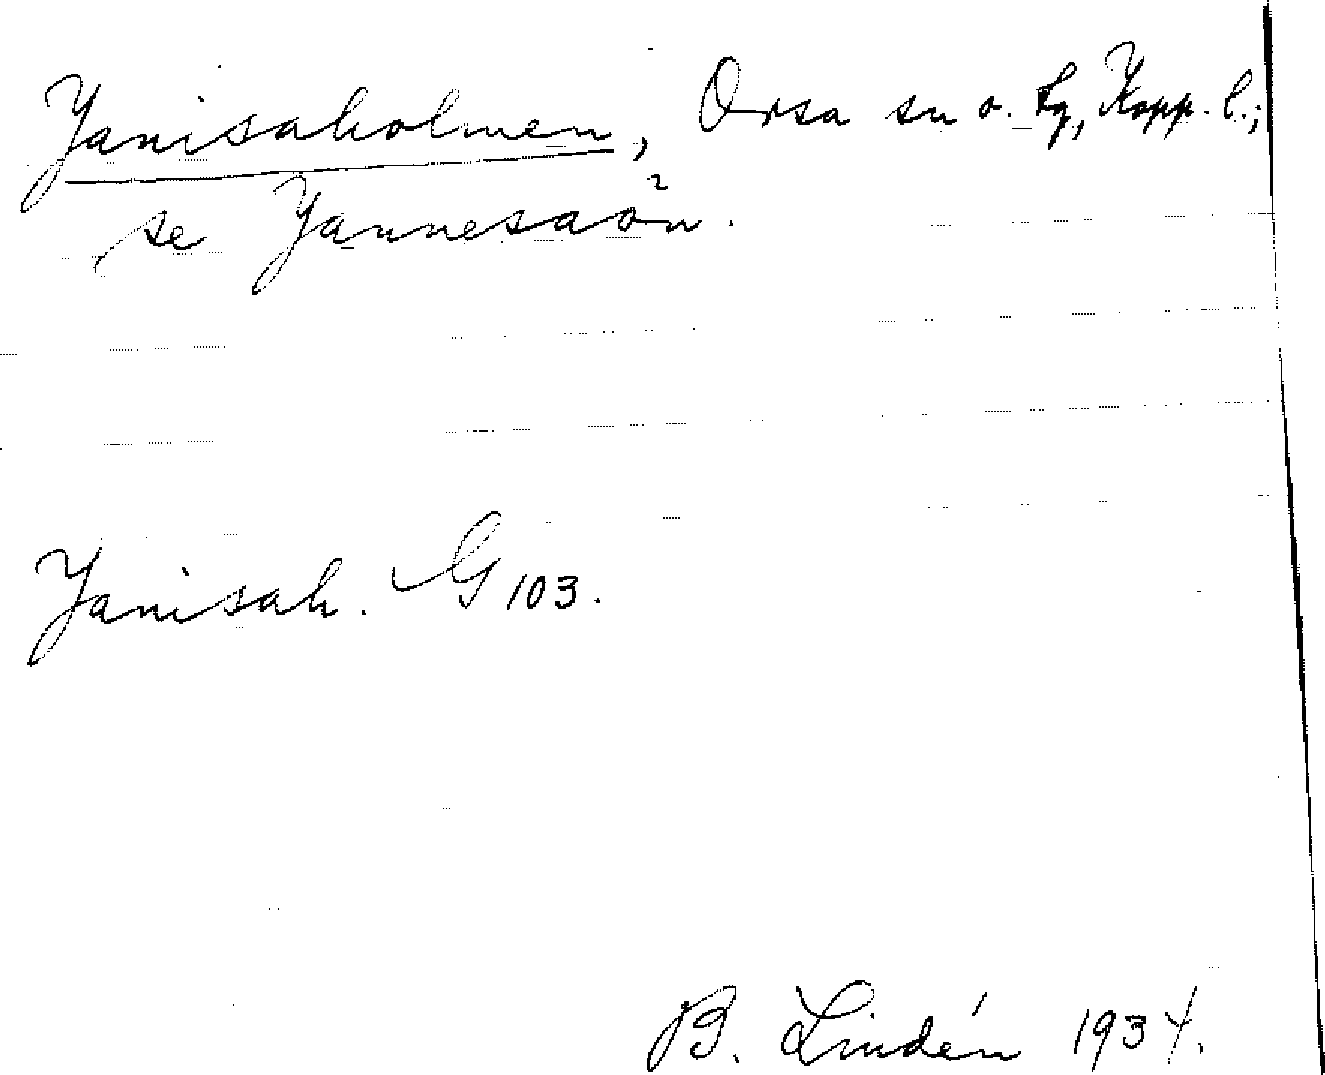 Janisaholmen, Orsa sn o. tg, Kopp. l.;
se Jannesaön.
Janisah. G 103.
B. Lindén 1934.